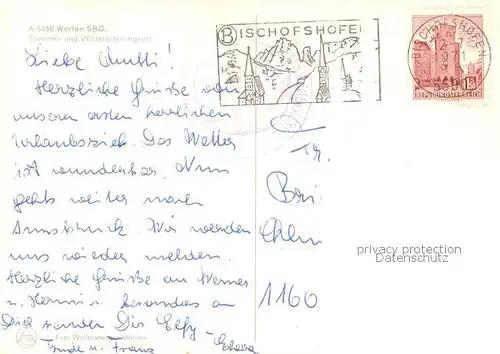 A-5450 Werfen SBG.
Sommer- und Wintererholungsort
BISCHOFSHOFEN
BISCHOFSHOFEN
REPUBLIK ÖSTERREICH
Liebe Mutti!
Herzliche Grüße von
unseren ersten herrlichen
Urlaubsziel. Das Wetter
ist wunderbar. Nun
gehts weiter nach
Innsbruck. Wir werden
uns wieder melden.
Herzliche Grüße an Werner
u. Hermi u. besonders an
Dich senden Dir Elfy -
Trude u. Franz
Fr.
1160
privacy protection
Datenschutz